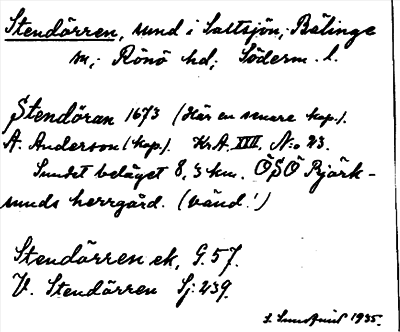 Stendörren, sund i Saltsjön, Bälinge
sn; Rönö hd; Söderm. l.
Stendöran 1673 (Här en senare kop.).
A. Anderson (kop). Kr.A. XVII. N:o 23.
Sundet beläget 8,3 km. ÖSÖ Björk-
sunds herrgård. (vänd!)
Stendörren ek, G.57.
V. Stendörren Sj: 239.
1935.